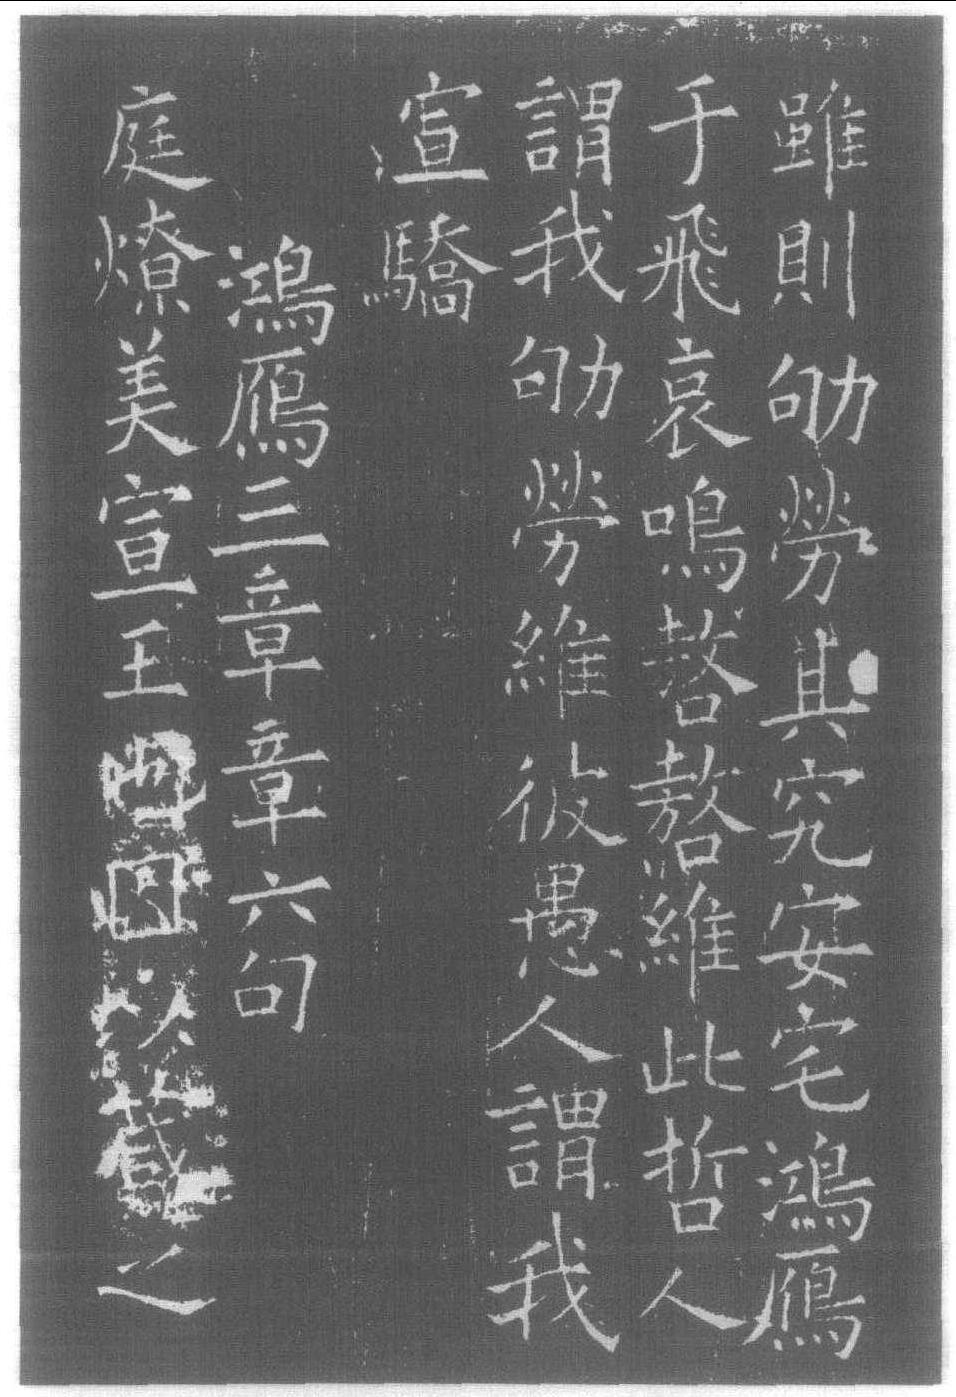 雖則劬勞其究安宅鴻鴈
于飛哀鳴嗸嗸維此哲人
謂我劬勞維彼愚人謂我
宣驕
鴻鴈三章章六句
庭燎美宣王也因以箴之